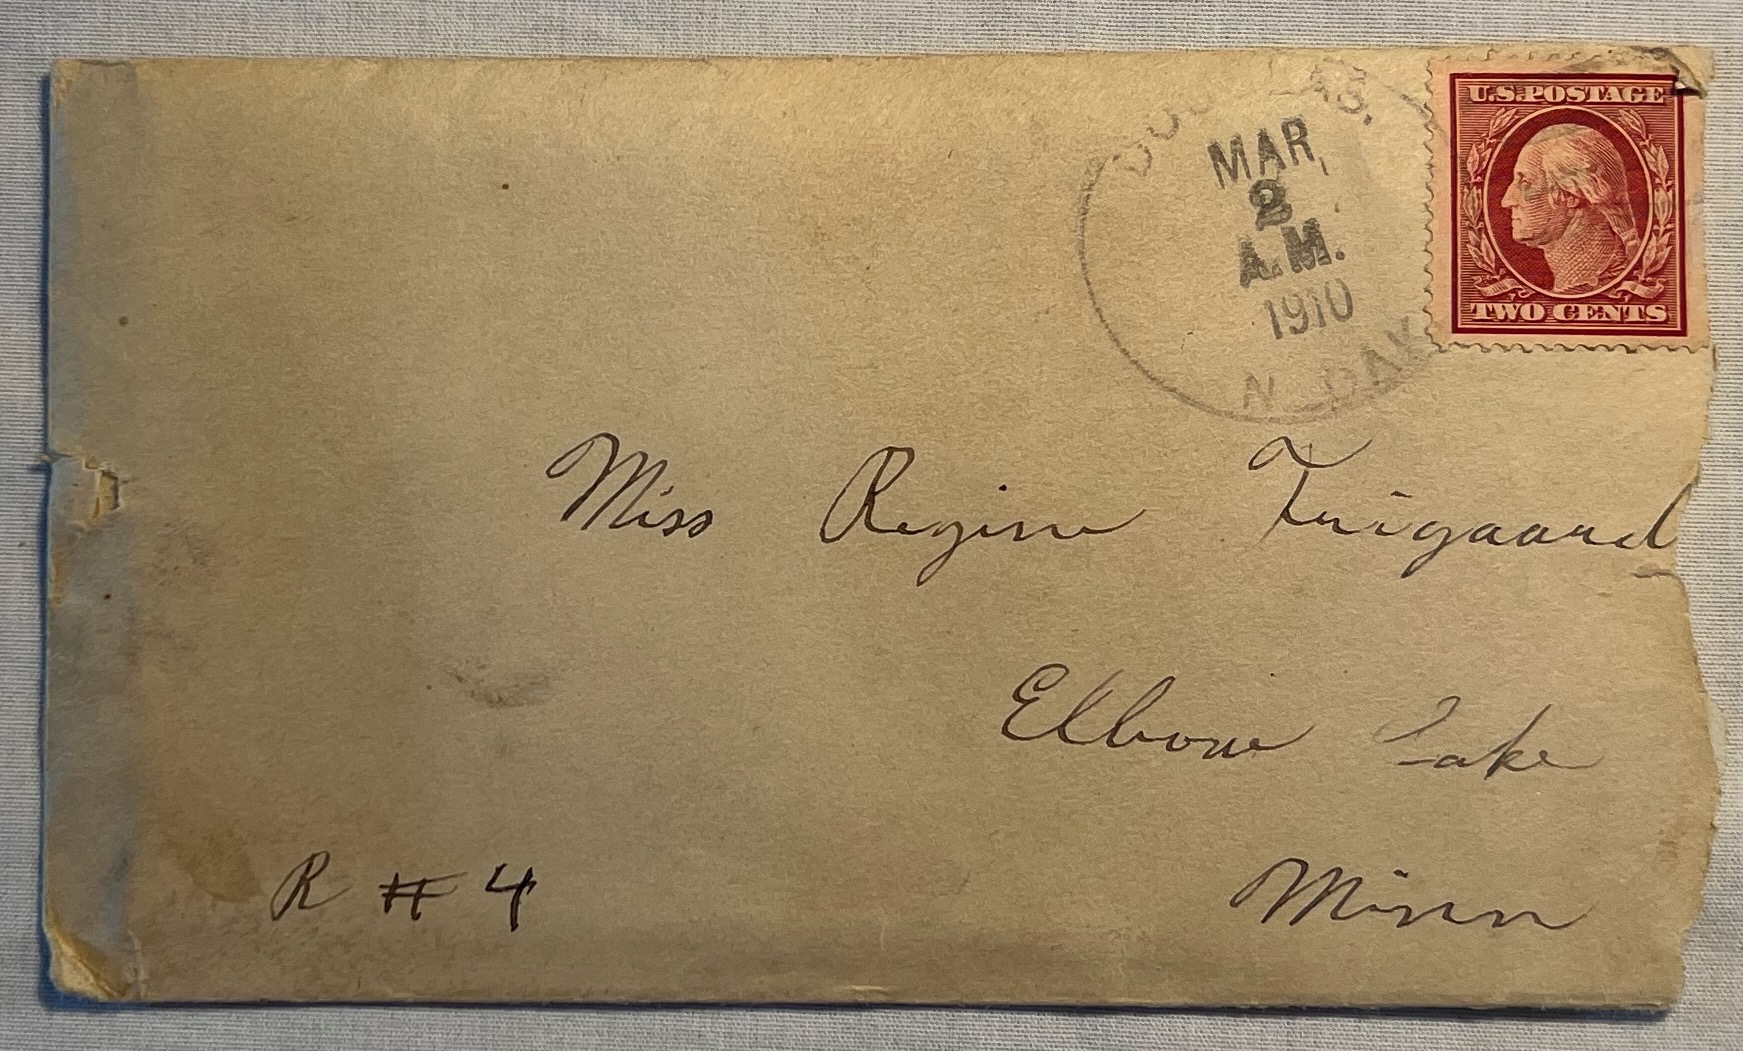 DOUGLAS.
MAR,
2
A.M.
1910
N. DAK.
U.S. POSTAGE
TWO CENTS
Miss Regina Friigaard
Elbow Lake
R # 4
Minn